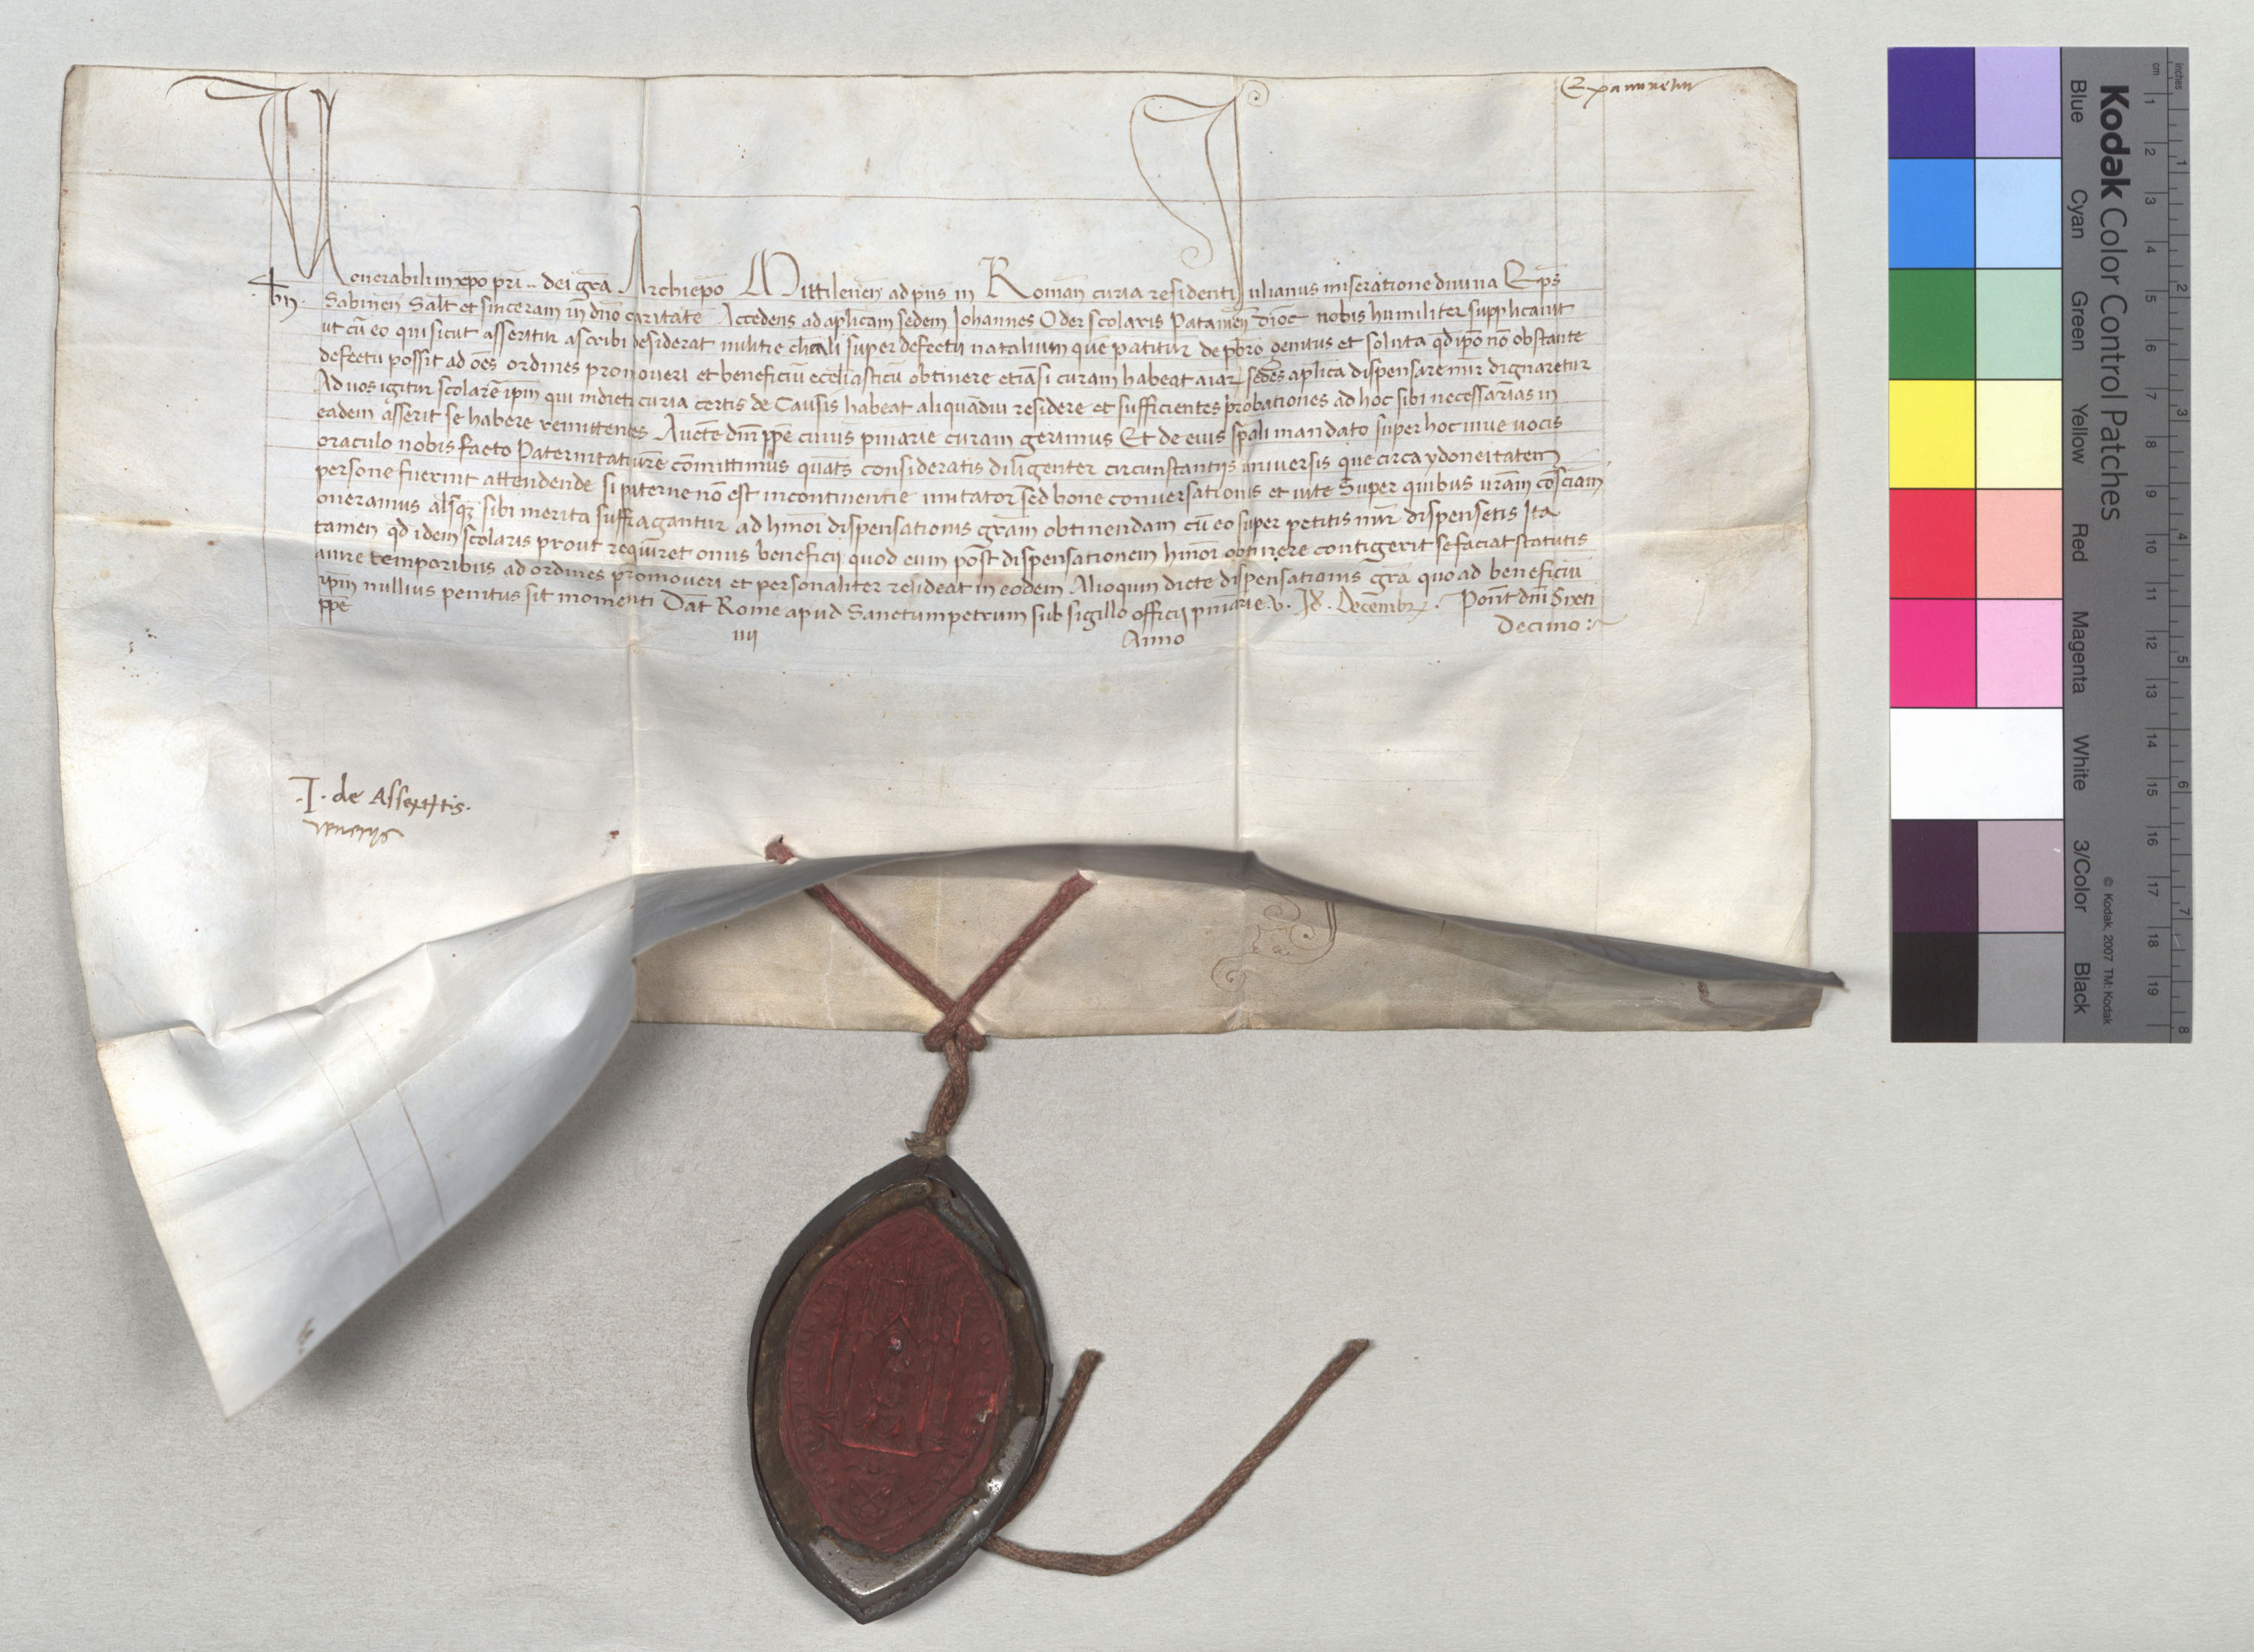 Expamnetur
Venerabili in xpo pri .. dei gra Archiepo Mittilenen ad pns in Roman curia residenti Julianus miseratione divina Eps
bn. Sabinen Salt et sinceram in dno caritate Accedens ad aplicam sedem Johannes Oder scolaris Patavien dioc nobis humiliter supplicavit
ut cu eo qui sicut asseritur ascribi desiderat militie clicali super defectu natalium que patitur de pbro genitus et soluta qd ipo no obstante
defectu possit ad oes ordines promoveri et beneficiu eccliasticu obtinere etiasi curam habeat aiar sedes aplica dispensare mir dignaretur
Ad vos igitur scolare ipm qui in dicta curia certis de Causis habeat aliquadiu residere et sufficientes probationes ad hoc sibi necessarias in
eadem asserit se habere remittentes Aucte dni ppe cuius pniarie curam gerimus Et de eius spali mandato super hoc vive vocis
oraculo nobis facto Paternitati vre comittimus quats consideratis diligenter circunstantijs universis que circa ydoneitatem
persone fuerint attendende si paterne no est incontinentie imitator sed bone conversationis et vite Super quibus vram cosciam
oneramus alsq sibi merita suffragantur ad hmoi dispensationis gram obtinendam cu eo super petitis mir dispensetis Ita
tamen qd idem scolaris prout requiret onus beneficij quod eum post dispensationem hmoi obtinere contigerit se faciat statutis
a iure temporibus ad ordines promoveri et personaliter resideat in eodem Alioquin dicte dispensationis gra quo ad beneficiu
ipm nullius penitus sit momenti Dat Rome apud Sanctumpetrum sub sigillo officij pniarie .v. Id. Decembr. Pont dni Sixti
ppe iiij Anno Decimo
.J. de Assertitis.